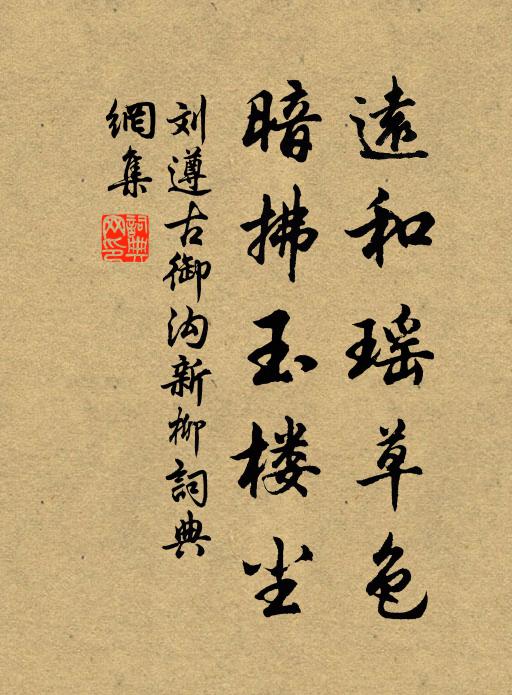 遠和瑶草色
暗拂玉楼尘
刘遵古御沟新柳詞典
網集
詞典
网印